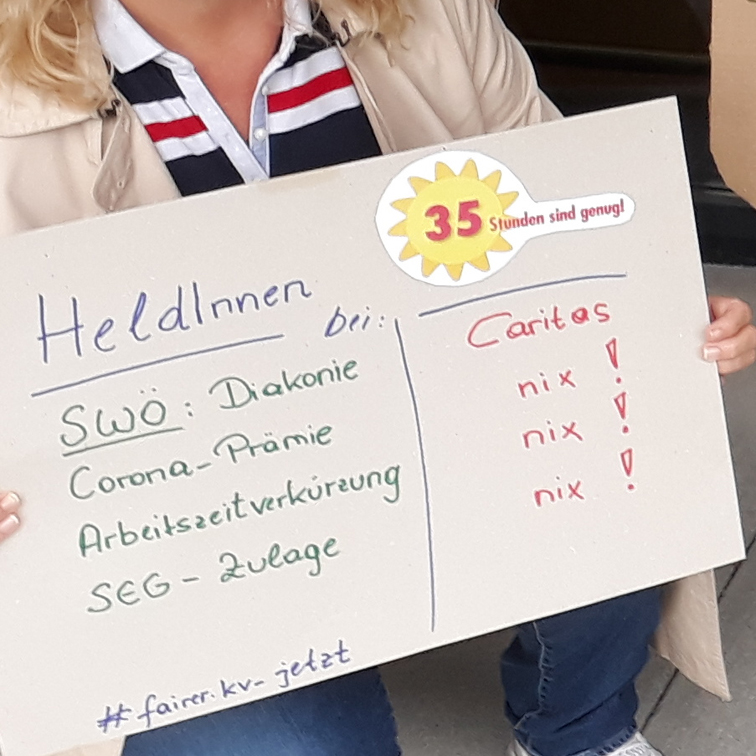 35 Stunden sind genug!
HeldInnen bei:
Caritas
SWÖ: Diakonie
Corona-Prämie
nix!
Arbeitszeitverkürzung
nix!
SEG-Zulage
nix!
#fairer.kv-jetzt